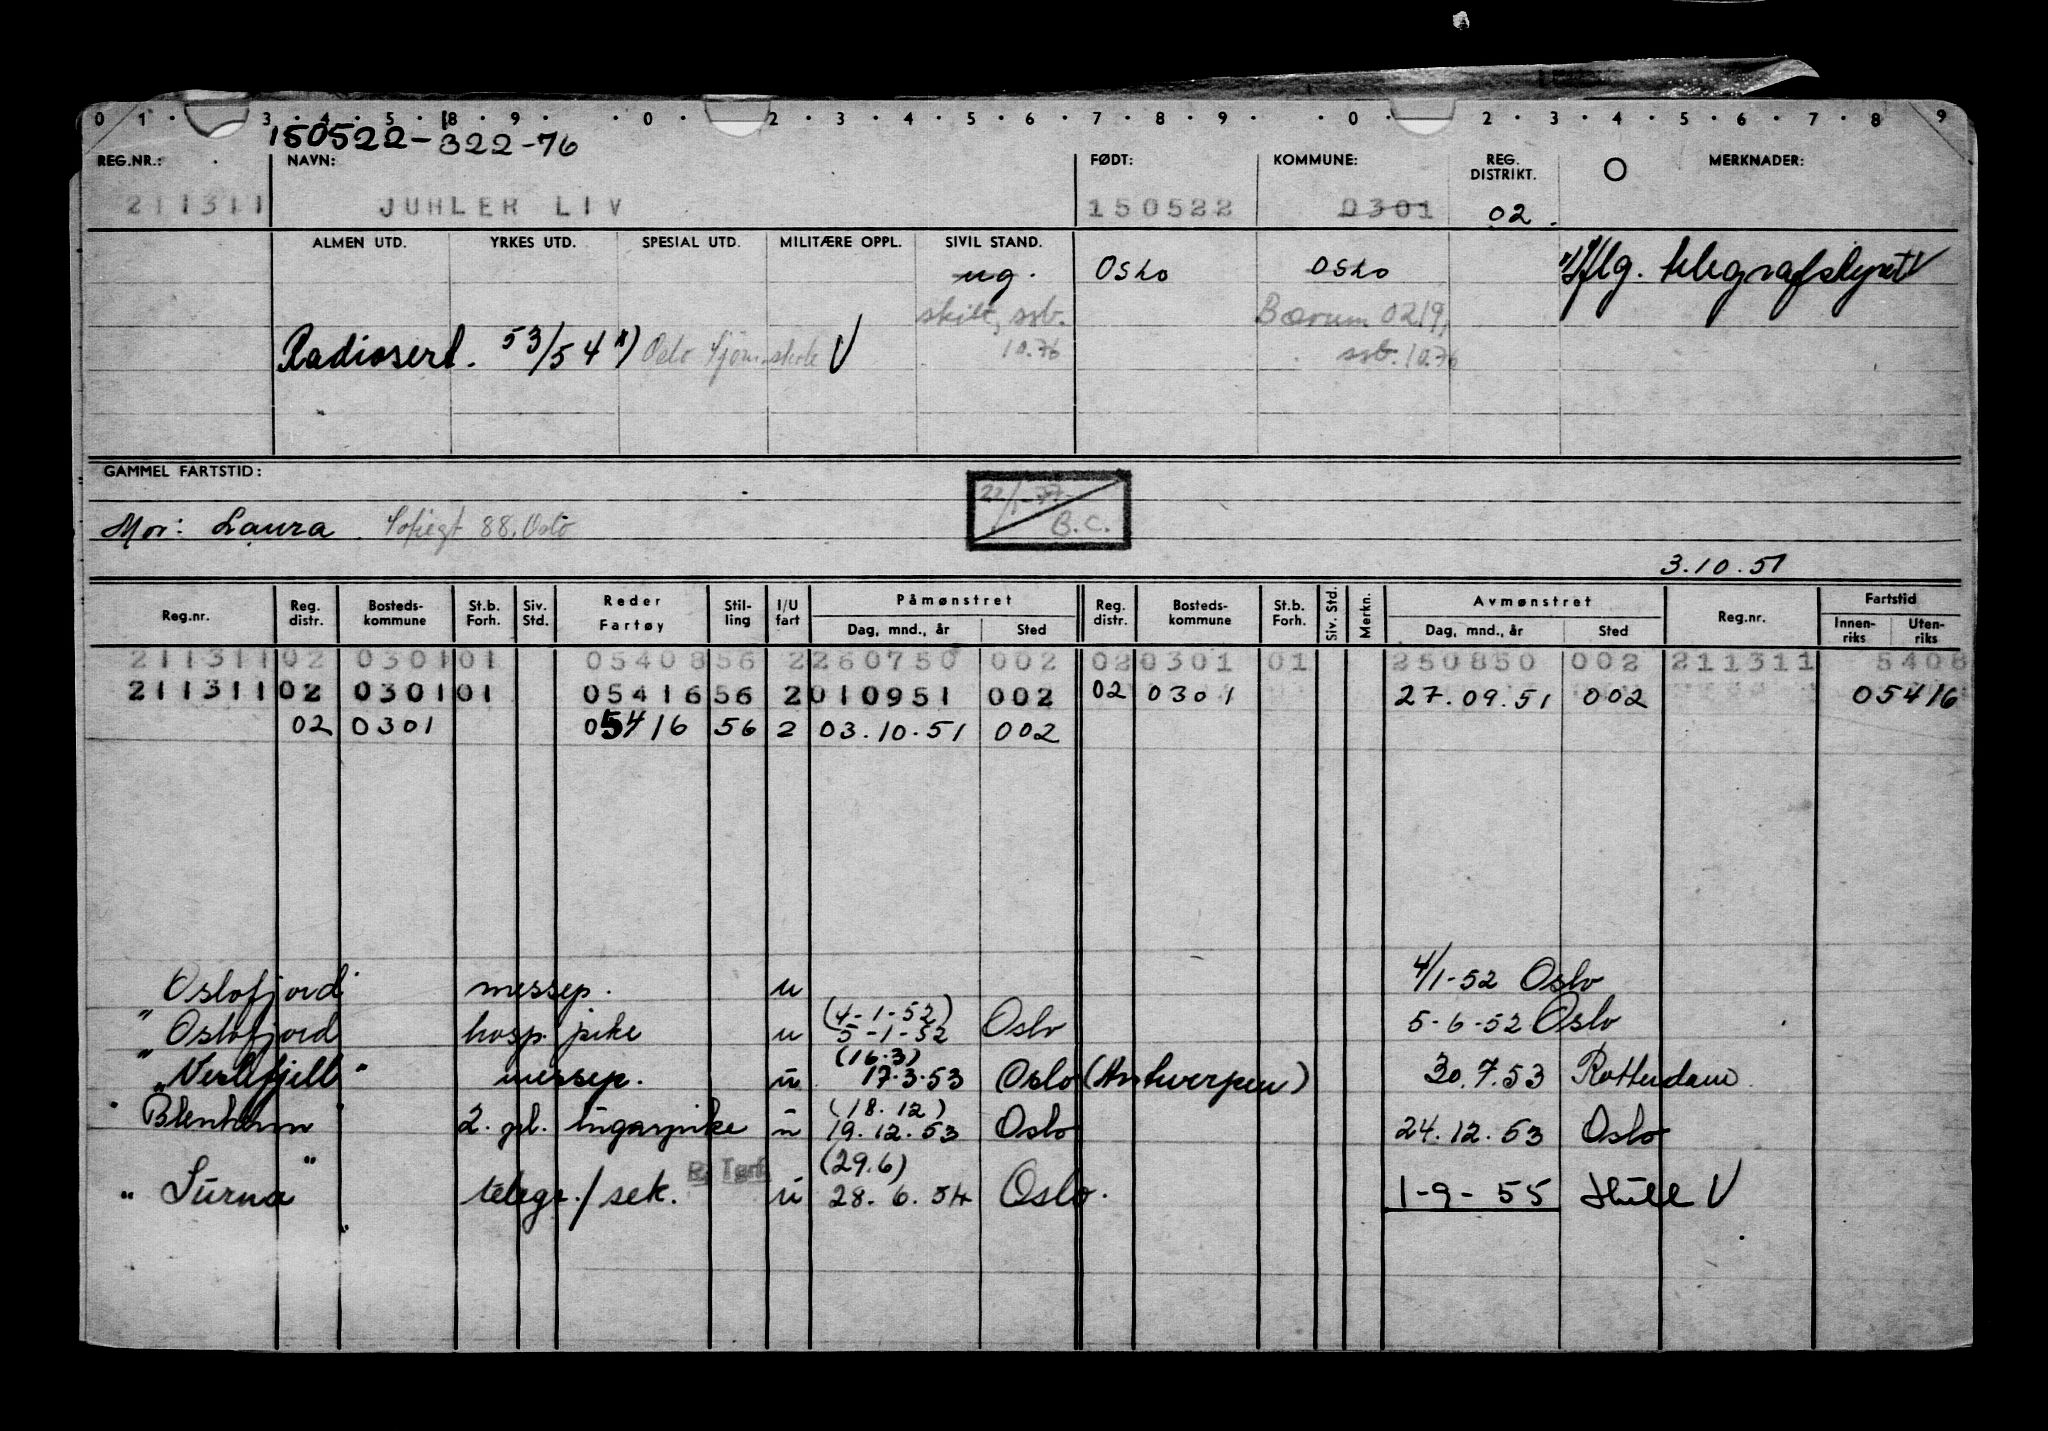 0 1 · 3 · 4 · 5 · 8 · 9 · · 0 · 2 · 3 · 4 · 5 · 6 · 7 · 8 · 9 · · 0 · 2 · 3 · 4 · 5 · 6 · 7 · 8 9
150522-322-76
REG.NR.: NAVN: FØDT: KOMMUNE: REG. DISTRIKT. O MERKNADER:
211311 JUHLER LIV 150522 0301 02
ALMEN UTD. YRKES UTD. SPESIAL UTD. MILITÆRE OPPL. SIVIL STAND.
ug. Oslo Oslo x) iflg. telegrafstyret V
skilt, ssb. Bærum 0219,
Radiosert. 53/54 x) Oslo Sjøm.skole V 10.76 ssb. 10.76
GAMMEL FARTSTID:
22/1-77
Mor: Laura Sofiegt 88. Oslo B.C.
3.10.51
Reg.nr. Reg. distr. Bosteds-kommune St.b. Forh. Siv. Std. Reder Fartøy Stil-ling I/U fart Påmønstret Reg. distr. Bosteds-kommune St.b. Forh. Siv. Std. Merkn. Avmønstret Reg.nr. Fartstid
Dag, mnd., år Sted Dag, mnd., år Sted Innen-riks Uten-riks
211311 02 0301 01 05408 56 2 260750 002 02 0301 01 250850 002 211311 5408
211311 02 0301 01 05416 56 2 010951 002 02 0301 27.09.51 002 05416
02 0301 05416 56 2 03.10.51 002
Oslofjord messep. u 4/1-52 Oslo
(4-1-52)
" Oslofjord hosp. pike u 5-1-52 Oslo 5-6-52 Oslo
(16.3)
" Veslefjell " messep. u 17.3.53 Oslo (Antwerpen) 30.7.53 Rotterdam
(18.12)
" Blenheim " 2. gl. lugarpike u 19.12.53 Oslo 24.12.53 Oslo
(29.6)
" Surna " telegr./sek. u 28.6.54 Oslo. 1-9-55 Hull V